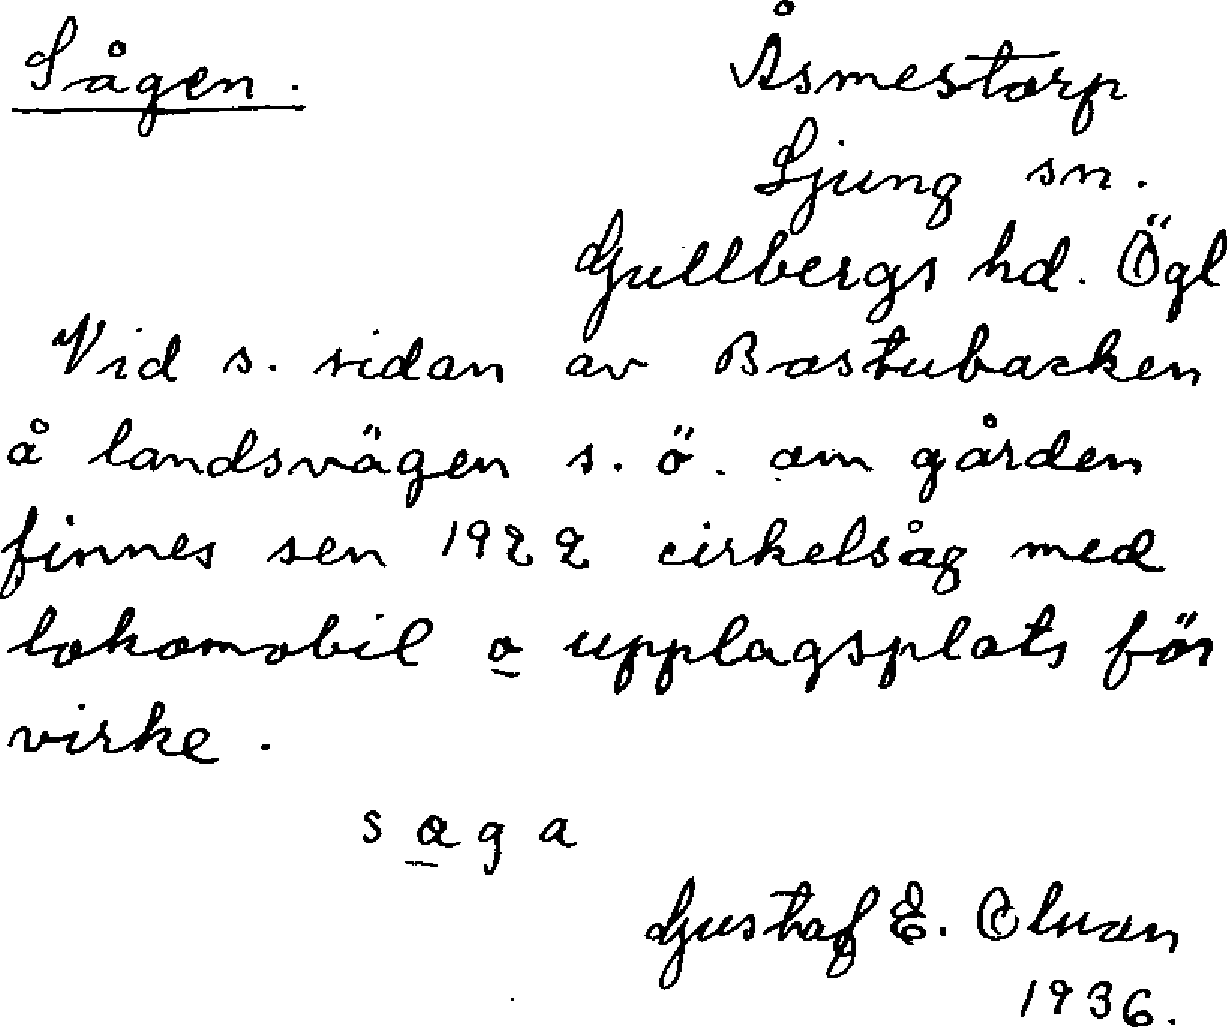 Sågen.
Åsmestorp
Ljung sn.
Gullbergs hd. Ögl
Vid s. sidan av Bastubacken
å landsvägen s. ö. om gården
finnes sen 1922 cirkelsåg med
lokomobil o upplagsplats för
virke.
saga
Gustaf E. Olson
1936.